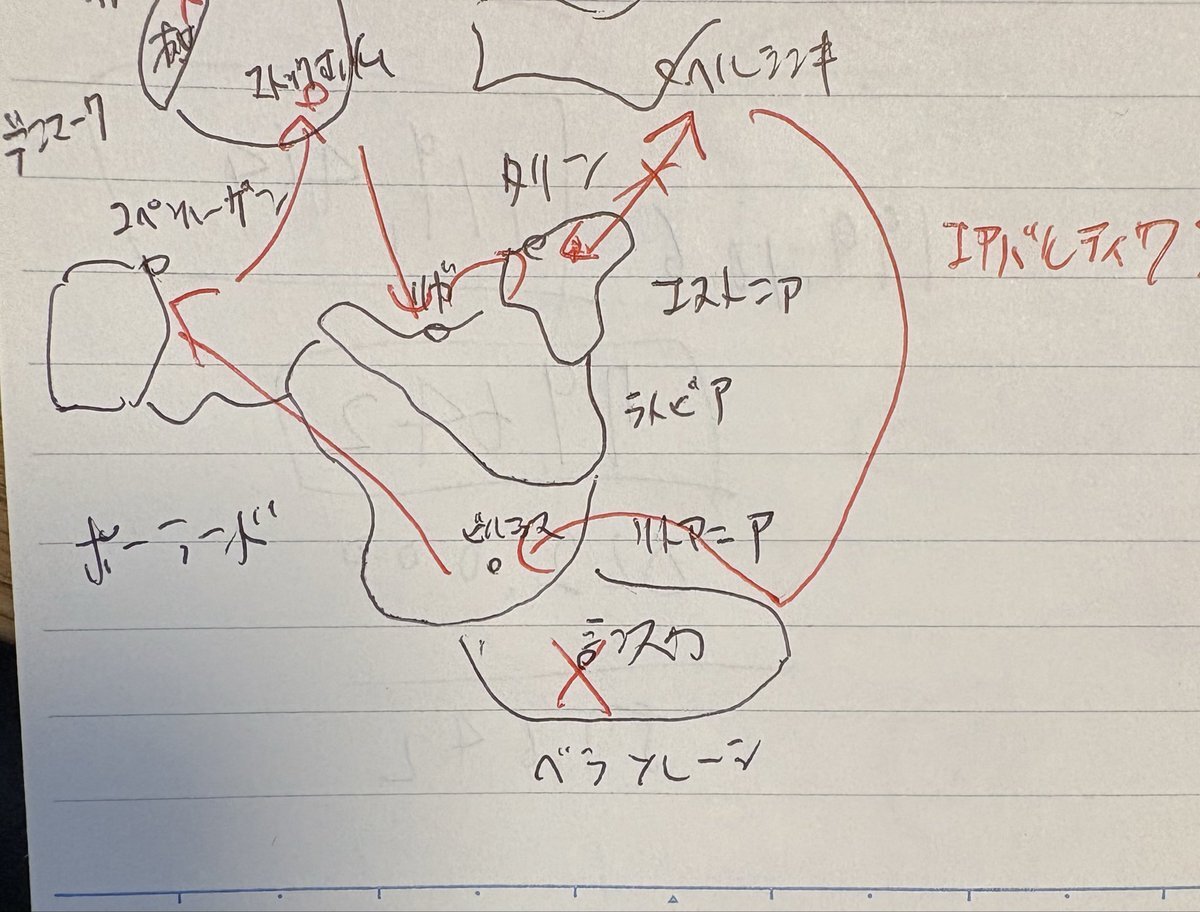 ストックホルム
ヘルシンキ
デンマーク
タリン
コペンハーゲン
エアバルティック
リガ
エストニア
ラトビア
ポーランド
ビルニュス
リトアニア
ミンスク
ベラルーシ